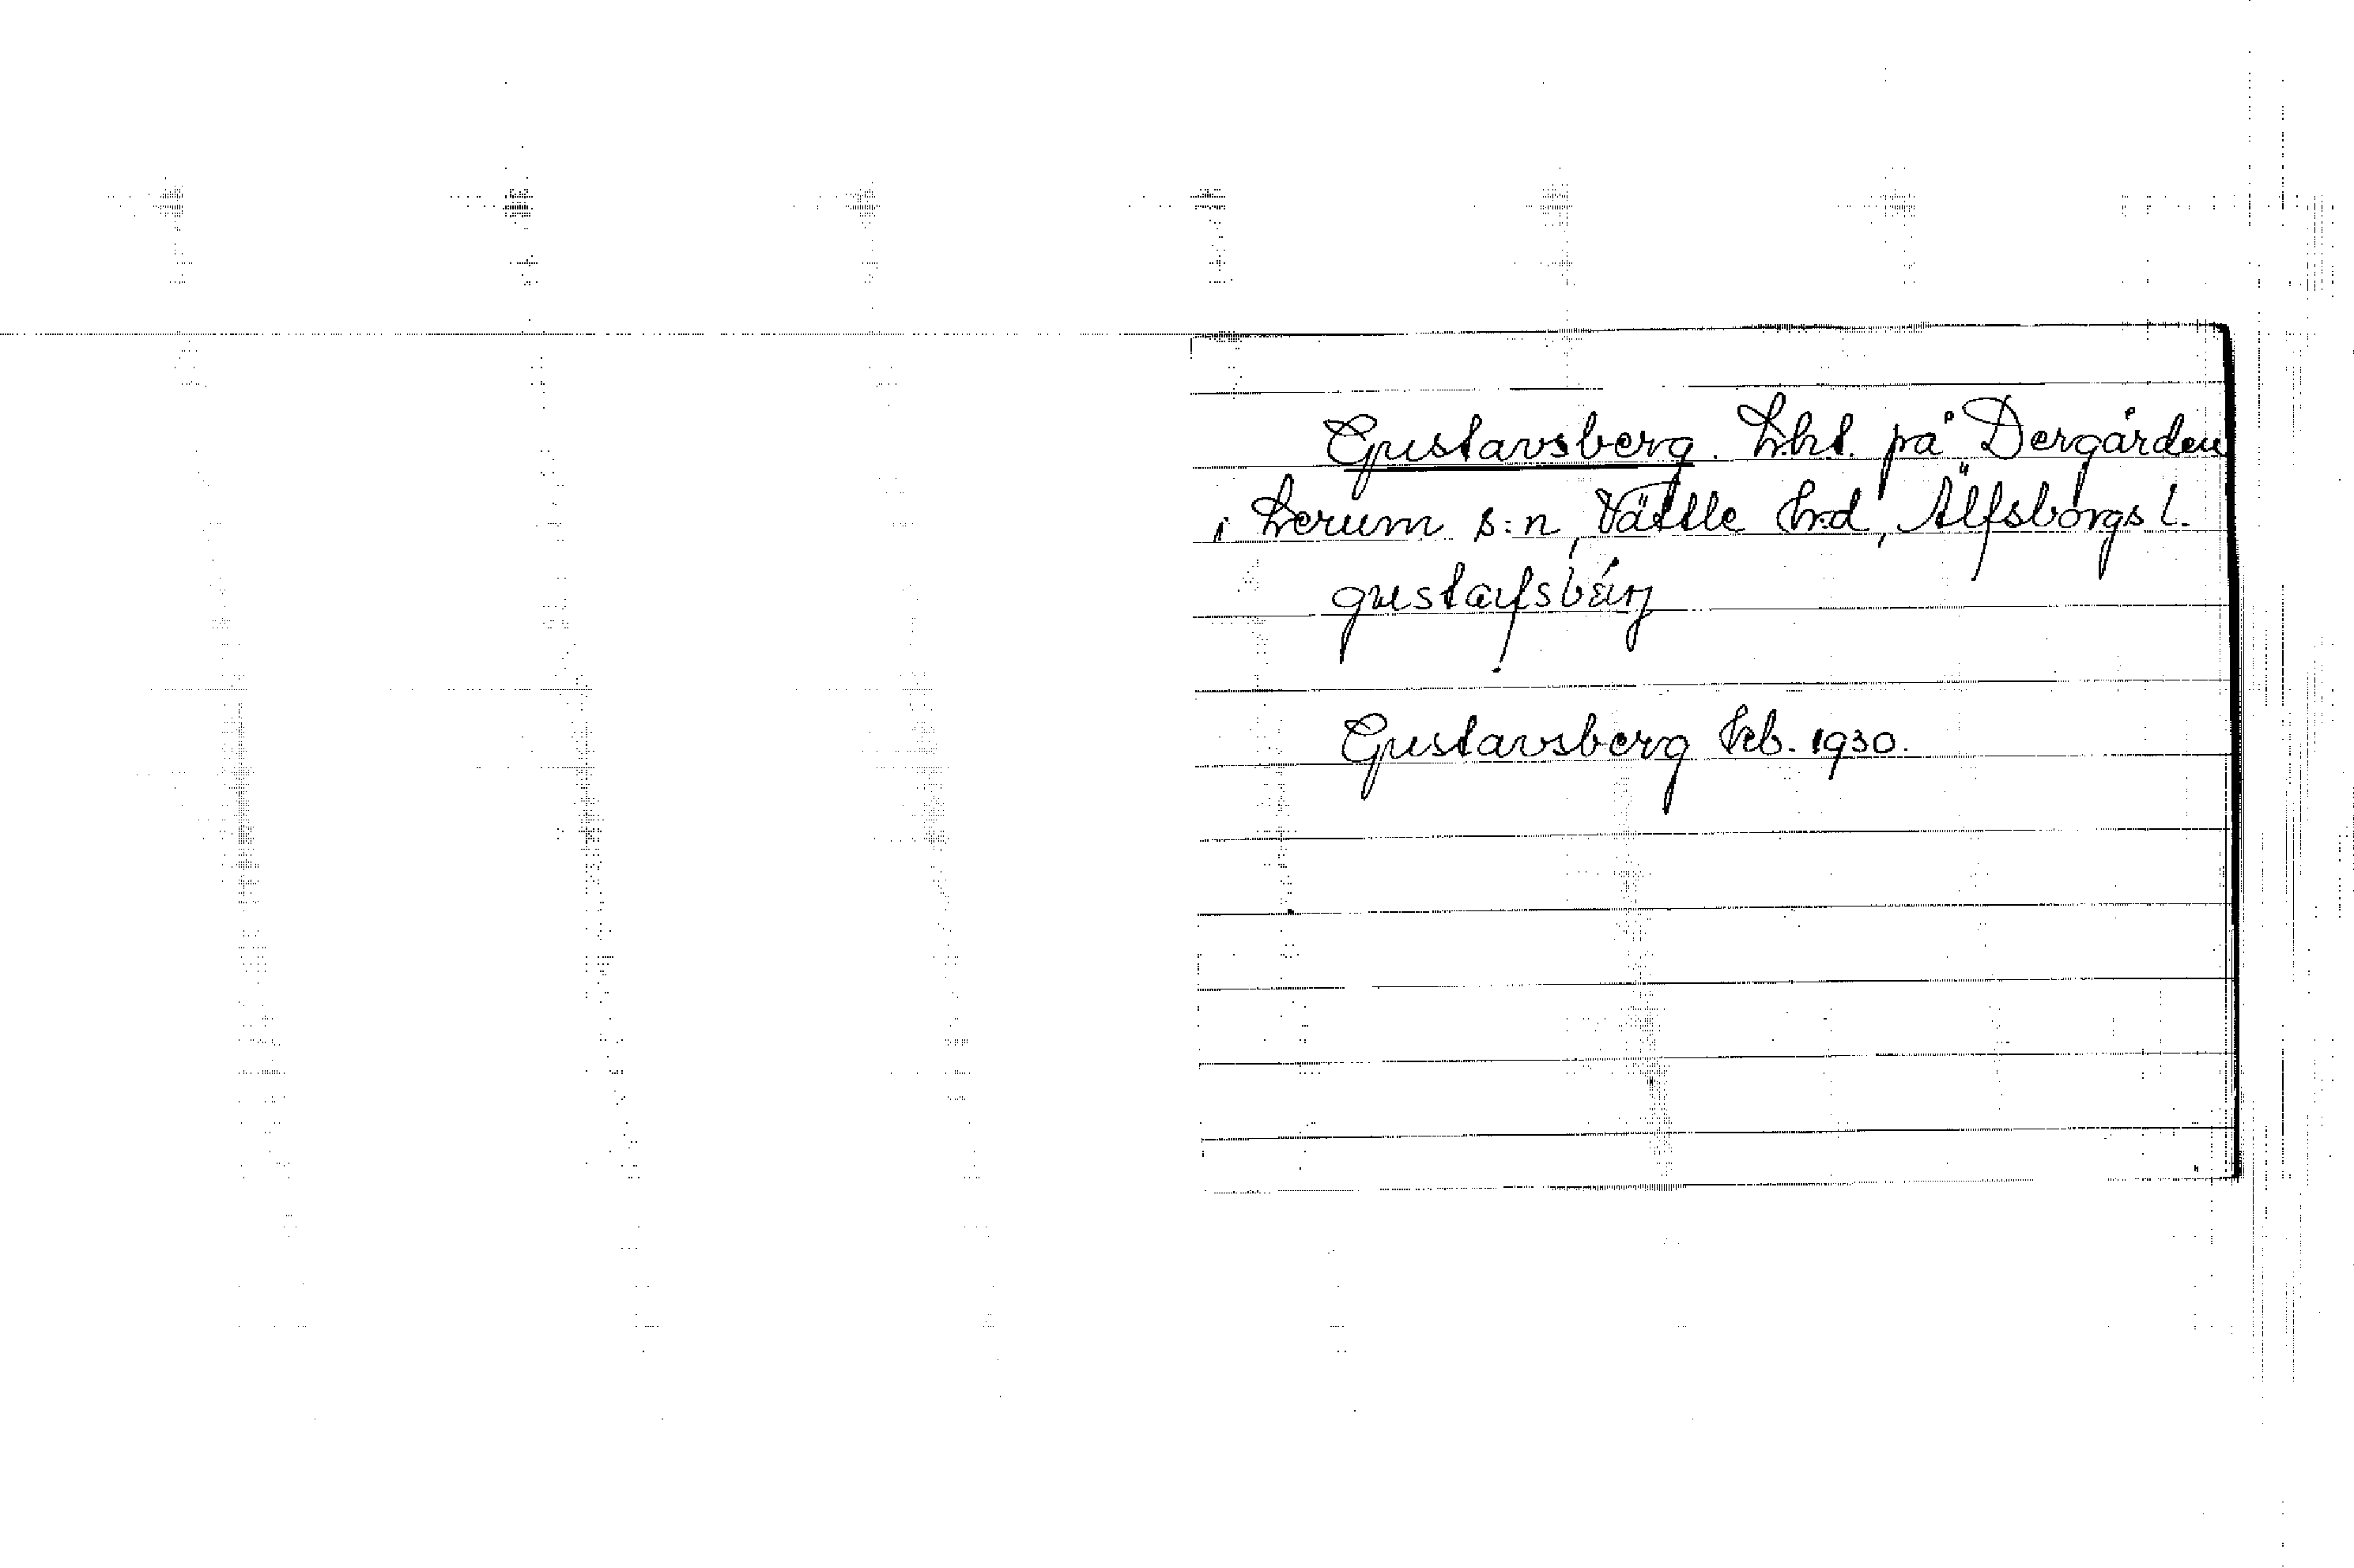 Gustavsberg. Lht. på Dergården
i Lerum s:n, Vättle hrd, Älfsborgs l.
gustafsbérj
Gustavsberg Jrb. 1930.